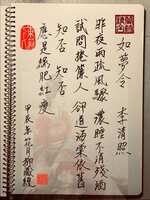 如夢令 李清照
昨夜雨疏風驟 濃睡不消殘酒
試問捲簾人 卻道海棠依舊
知否 知否
應是綠肥紅瘦
甲辰年